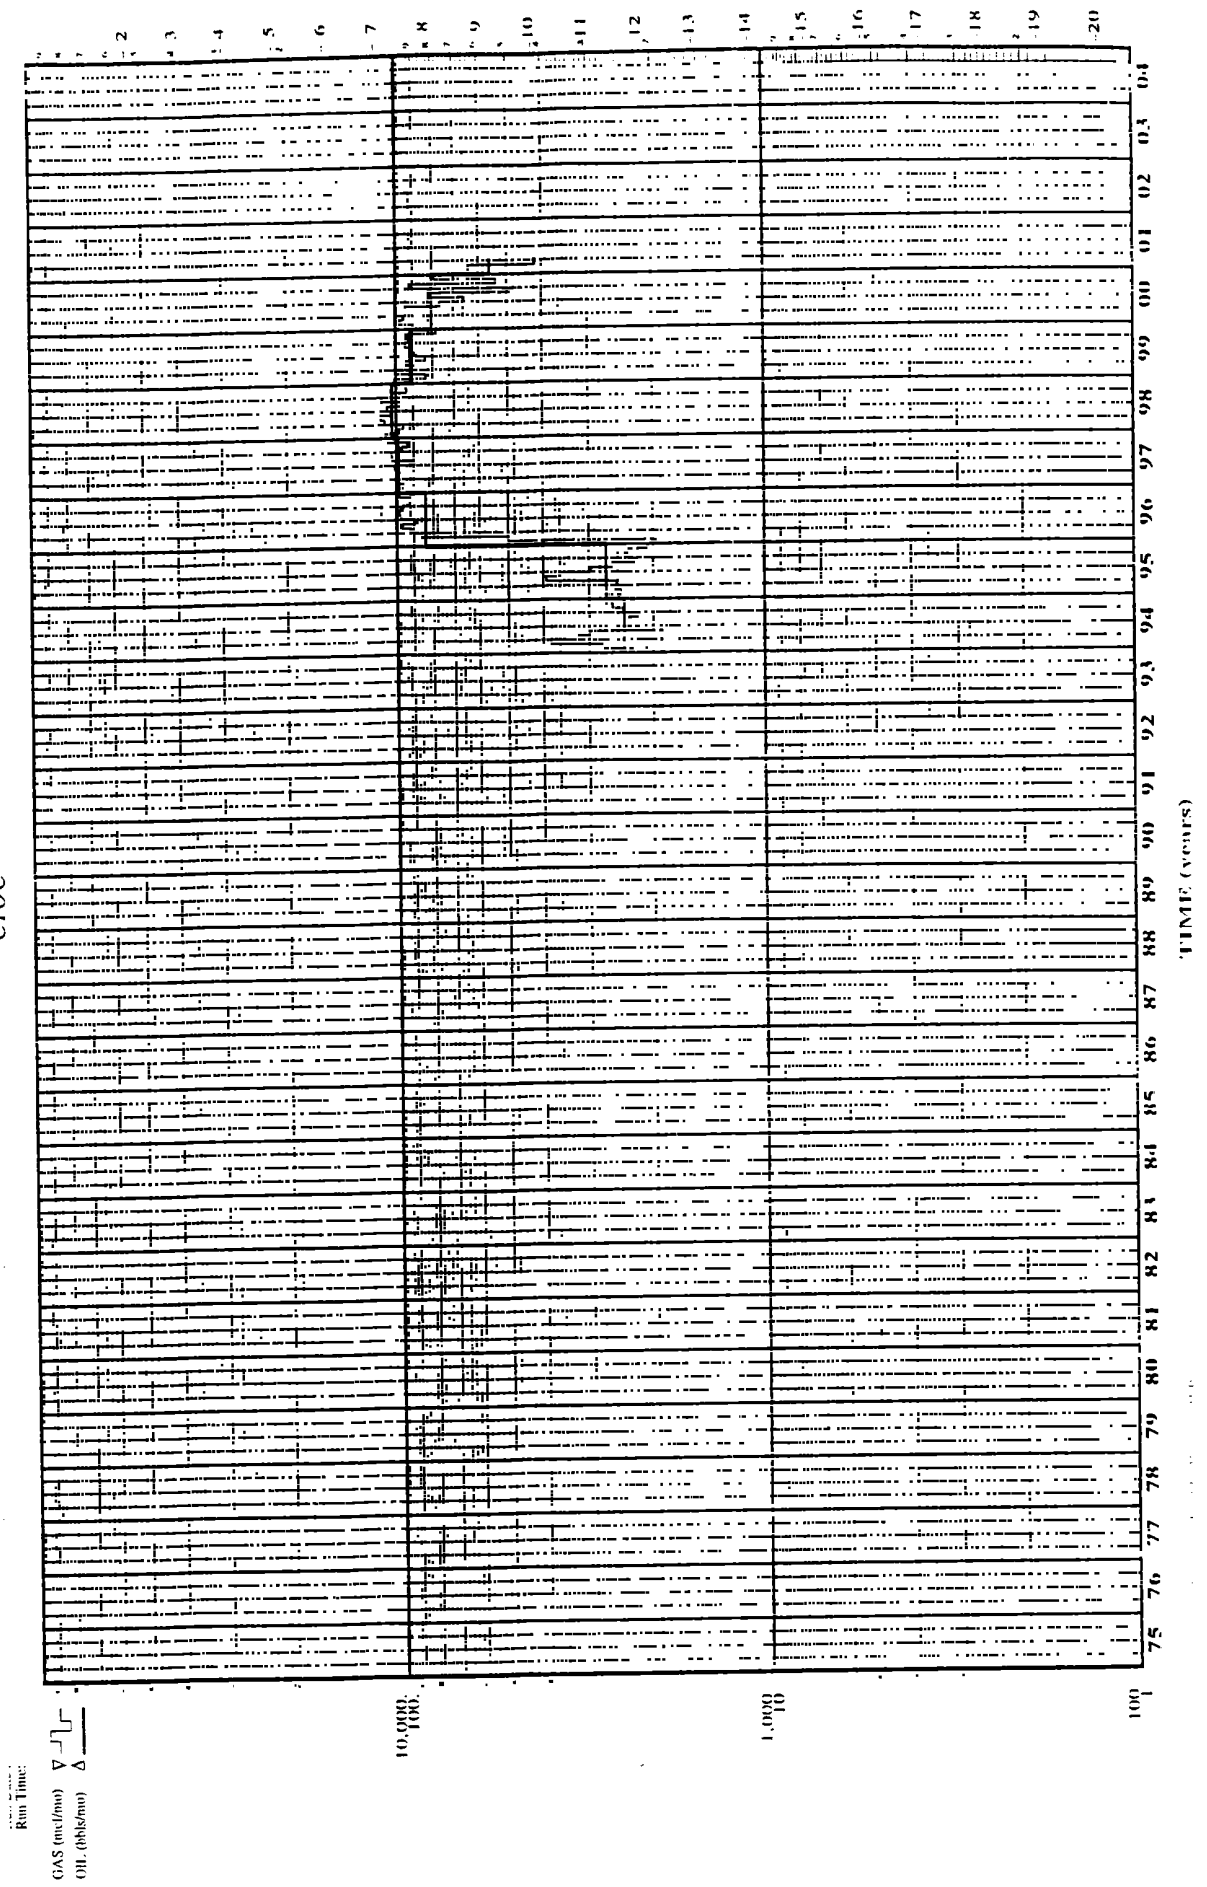 Run Time:
GAS (mcf/mo)
OIL (bbls/mo)
10,000
100
1,000
10
100
1
75 76 77 78 79 80 81 82 83 84 85 86 87 88 89 90 91 92 93 94 95 96 97 98 99 00 01 02 03 04
TIME (years)
2 3 4 5 6 7 8 9 10 11 12 13 14 15 16 17 18 19 20